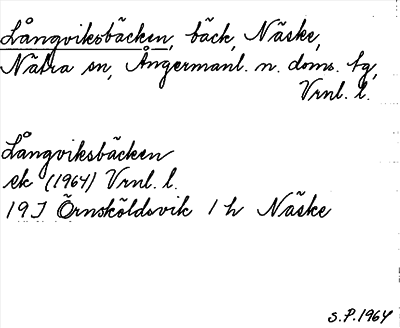 Långviksbäcken, bäck, Näske,
Nätra sn, Ångermanl. n. doms. tg,
Vrnl. l.
Långviksbäcken
ek (1964) Vrnl. l.
19 J Örnsköldsvik 1 h Näske
S.P. 1964